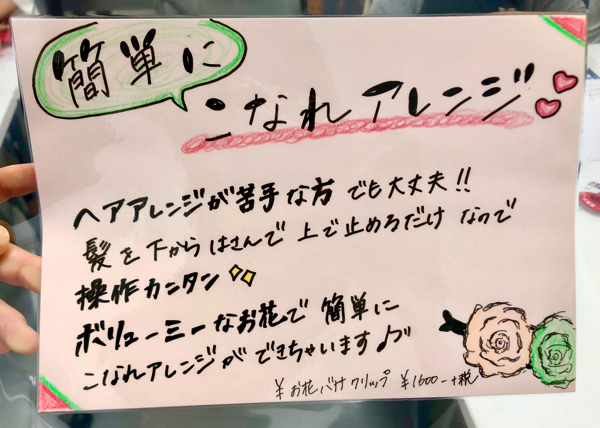 簡単に
こなれアレンジ
ヘアアレンジが苦手な方でも大丈夫!!
髪を下からはさんで上で止めるだけなので
操作カンタン
ボリューミーなお花で簡単に
こなれアレンジができちゃいます♪
¥お花バナクリップ ¥1600-+税